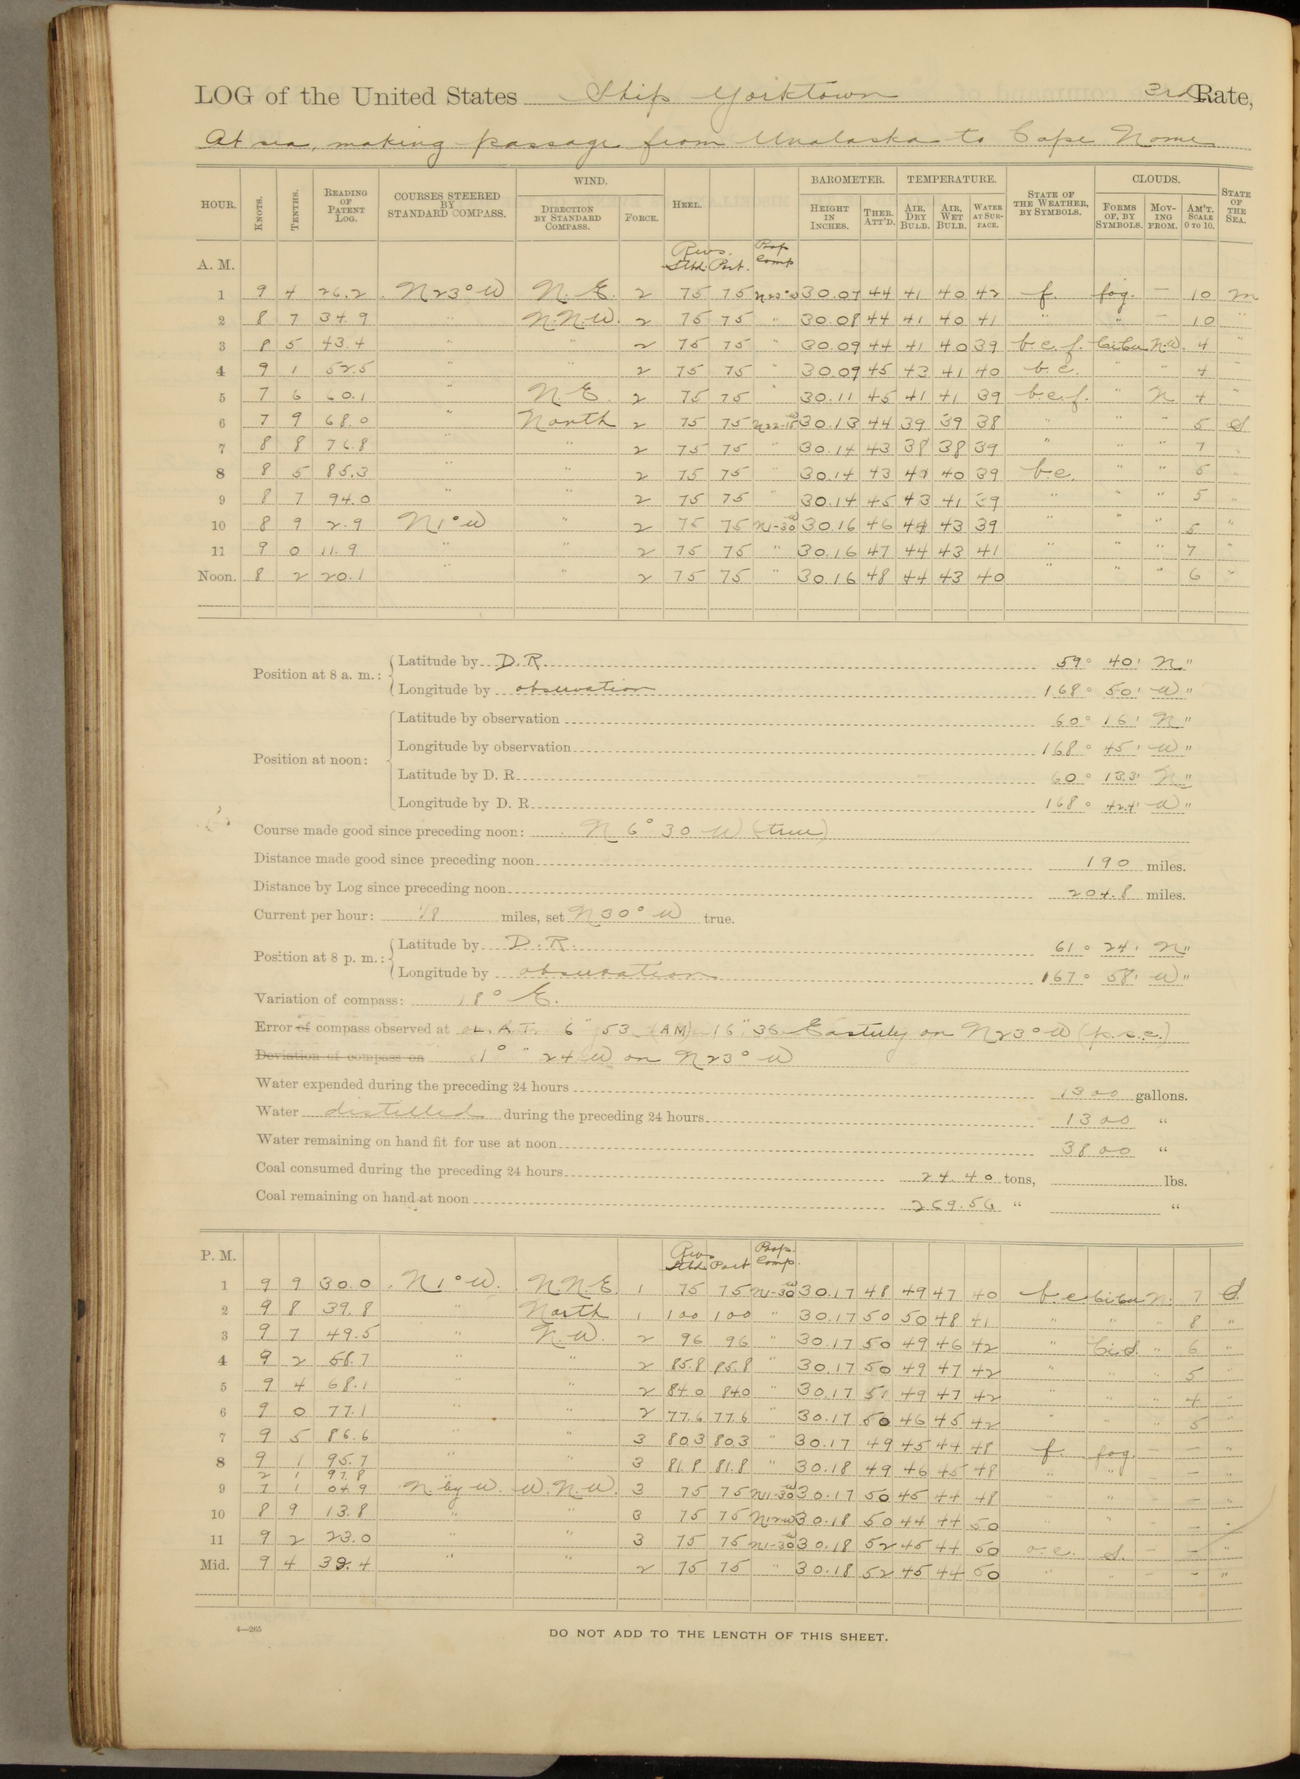 LOG of the United States Ship Yorktown 3rd Rate,
At sea, making passage from Unalaska to Cape Nome
HOUR. KNOTS. TENTHS. READING OF PATENT LOG. COURSES STEERED BY STANDARD COMPASS. WIND. DIRECTION BY STANDARD COMPASS. FORCE. HEEL. BAROMETER. HEIGHT IN INCHES. THER. ATT'D. TEMPERATURE. AIR, DRY BULB. AIR, WET BULB. WATER AT SURFACE. STATE OF THE WEATHER, BY SYMBOLS. CLOUDS. FORMS OF, BY SYMBOLS. MOVING FROM. AM'T. SCALE 0 TO 10. STATE OF THE SEA.
A. M. Revs. Stbd. Port. Prop Comp
1 9 4 26.2 N23°W N.E. 2 75 75 30.07 44 41 40 42 f. fog. — 10 m
2 8 7 34.9 " N.N.W. 2 75 75 " 30.08 44 41 40 41 " " — 10 "
3 8 5 43.4 " " 2 75 75 " 30.09 44 41 40 39 b.c.f. Ci.Cu. N.W. 4 "
4 9 1 52.5 " " 2 75 75 " 30.09 45 43 41 40 b.c. " " 4 "
5 7 6 60.1 " N.E. 2 75 75 " 30.11 45 41 41 39 b.c.f. " N. 4 "
6 7 9 68.0 " North 2 75 75 30.13 44 39 39 38 " " " 5 S
7 8 8 76.8 " " 2 75 75 " 30.14 43 38 38 39 " " " 7 "
8 8 5 85.3 " " 2 75 75 " 30.14 43 40 39 b.c. " " 5 "
9 8 7 94.0 " " 2 75 75 " 30.14 45 43 41 39 " " " 5 "
10 8 9 2.9 N1°W " 2 75 75 N1-30W 30.16 46 44 43 39 " " " 5 "
11 9 0 11.9 " " 2 75 75 " 30.16 47 44 43 41 " " " 7 "
Noon. 8 2 20.1 " " 2 75 75 " 30.16 48 44 43 40 " " " 6 "
Position at 8 a. m.: Latitude by D.R. 59° 40' N"
Longitude by observation 168° 50' W"
Position at noon: Latitude by observation 60° 16' N"
Longitude by observation 168° 45' W"
Latitude by D. R. 60° 13.3' N"
Longitude by D. R. 168° 42.4' W"
Course made good since preceding noon: N 6° 30 W (true)
Distance made good since preceding noon 190 miles.
Distance by Log since preceding noon 204.8 miles.
Current per hour: 1/8 miles, set N30°W true.
Position at 8 p. m.: Latitude by D.R. 61° 24' N"
Longitude by observation 167° 58' W"
Variation of compass: 18° E.
Error of compass observed at L.A.T. 6 53 (AM) 16 36 Easterly on N23°W (p.s.c.)
Deviation of compass on 1° 24 W on N23°W
Water expended during the preceding 24 hours 1300 gallons.
Water distilled during the preceding 24 hours 1300 "
Water remaining on hand fit for use at noon 3800 "
Coal consumed during the preceding 24 hours 24.40 tons, lbs.
Coal remaining on hand at noon 269.56 " "
P. M. Revs Stbd. Port Prop. Comp.
1 9 9 30.0 N1°W. N.N.E. 1 75 75 N1-30W 30.17 48 49 47 40 b.c Ci.Cu N. 7 S.
2 9 8 39.8 " North 1 100 100 " 30.17 50 50 48 41 " " " 8 "
3 9 7 49.5 " N.W. 2 96 96 " 30.17 50 49 46 42 " Ci.S. " 6 "
4 9 2 58.7 " " 2 85.8 85.8 " 30.17 50 49 47 42 " " " 5 "
5 9 4 68.1 " " 2 84.0 84.0 " 30.17 51 49 47 42 " " " 4 "
6 9 0 77.1 " " 2 77.6 77.6 " 30.17 50 46 45 42 " " " 5 "
7 9 5 86.6 " " 3 80.3 80.3 " 30.17 49 45 44 48 f. fog. — — "
8 9 1 95.7 " " 3 81.8 81.8 " 30.18 49 46 45 48 " " — — "
2 1 97.8
9 7 1 04.9 N. by W. W.N.W. 3 75 75 N1-30W 30.17 50 45 44 48 " " — — "
10 8 9 13.8 " " 3 75 75 30.18 50 44 44 50 " " — — "
11 9 2 23.0 " " 3 75 75 N1-30W 30.18 52 45 44 50 o.c. S. — — "
Mid. 9 4 32.4 " " 2 75 75 " 30.18 52 45 44 50 " " — — "
4—265
DO NOT ADD TO THE LENGTH OF THIS SHEET.